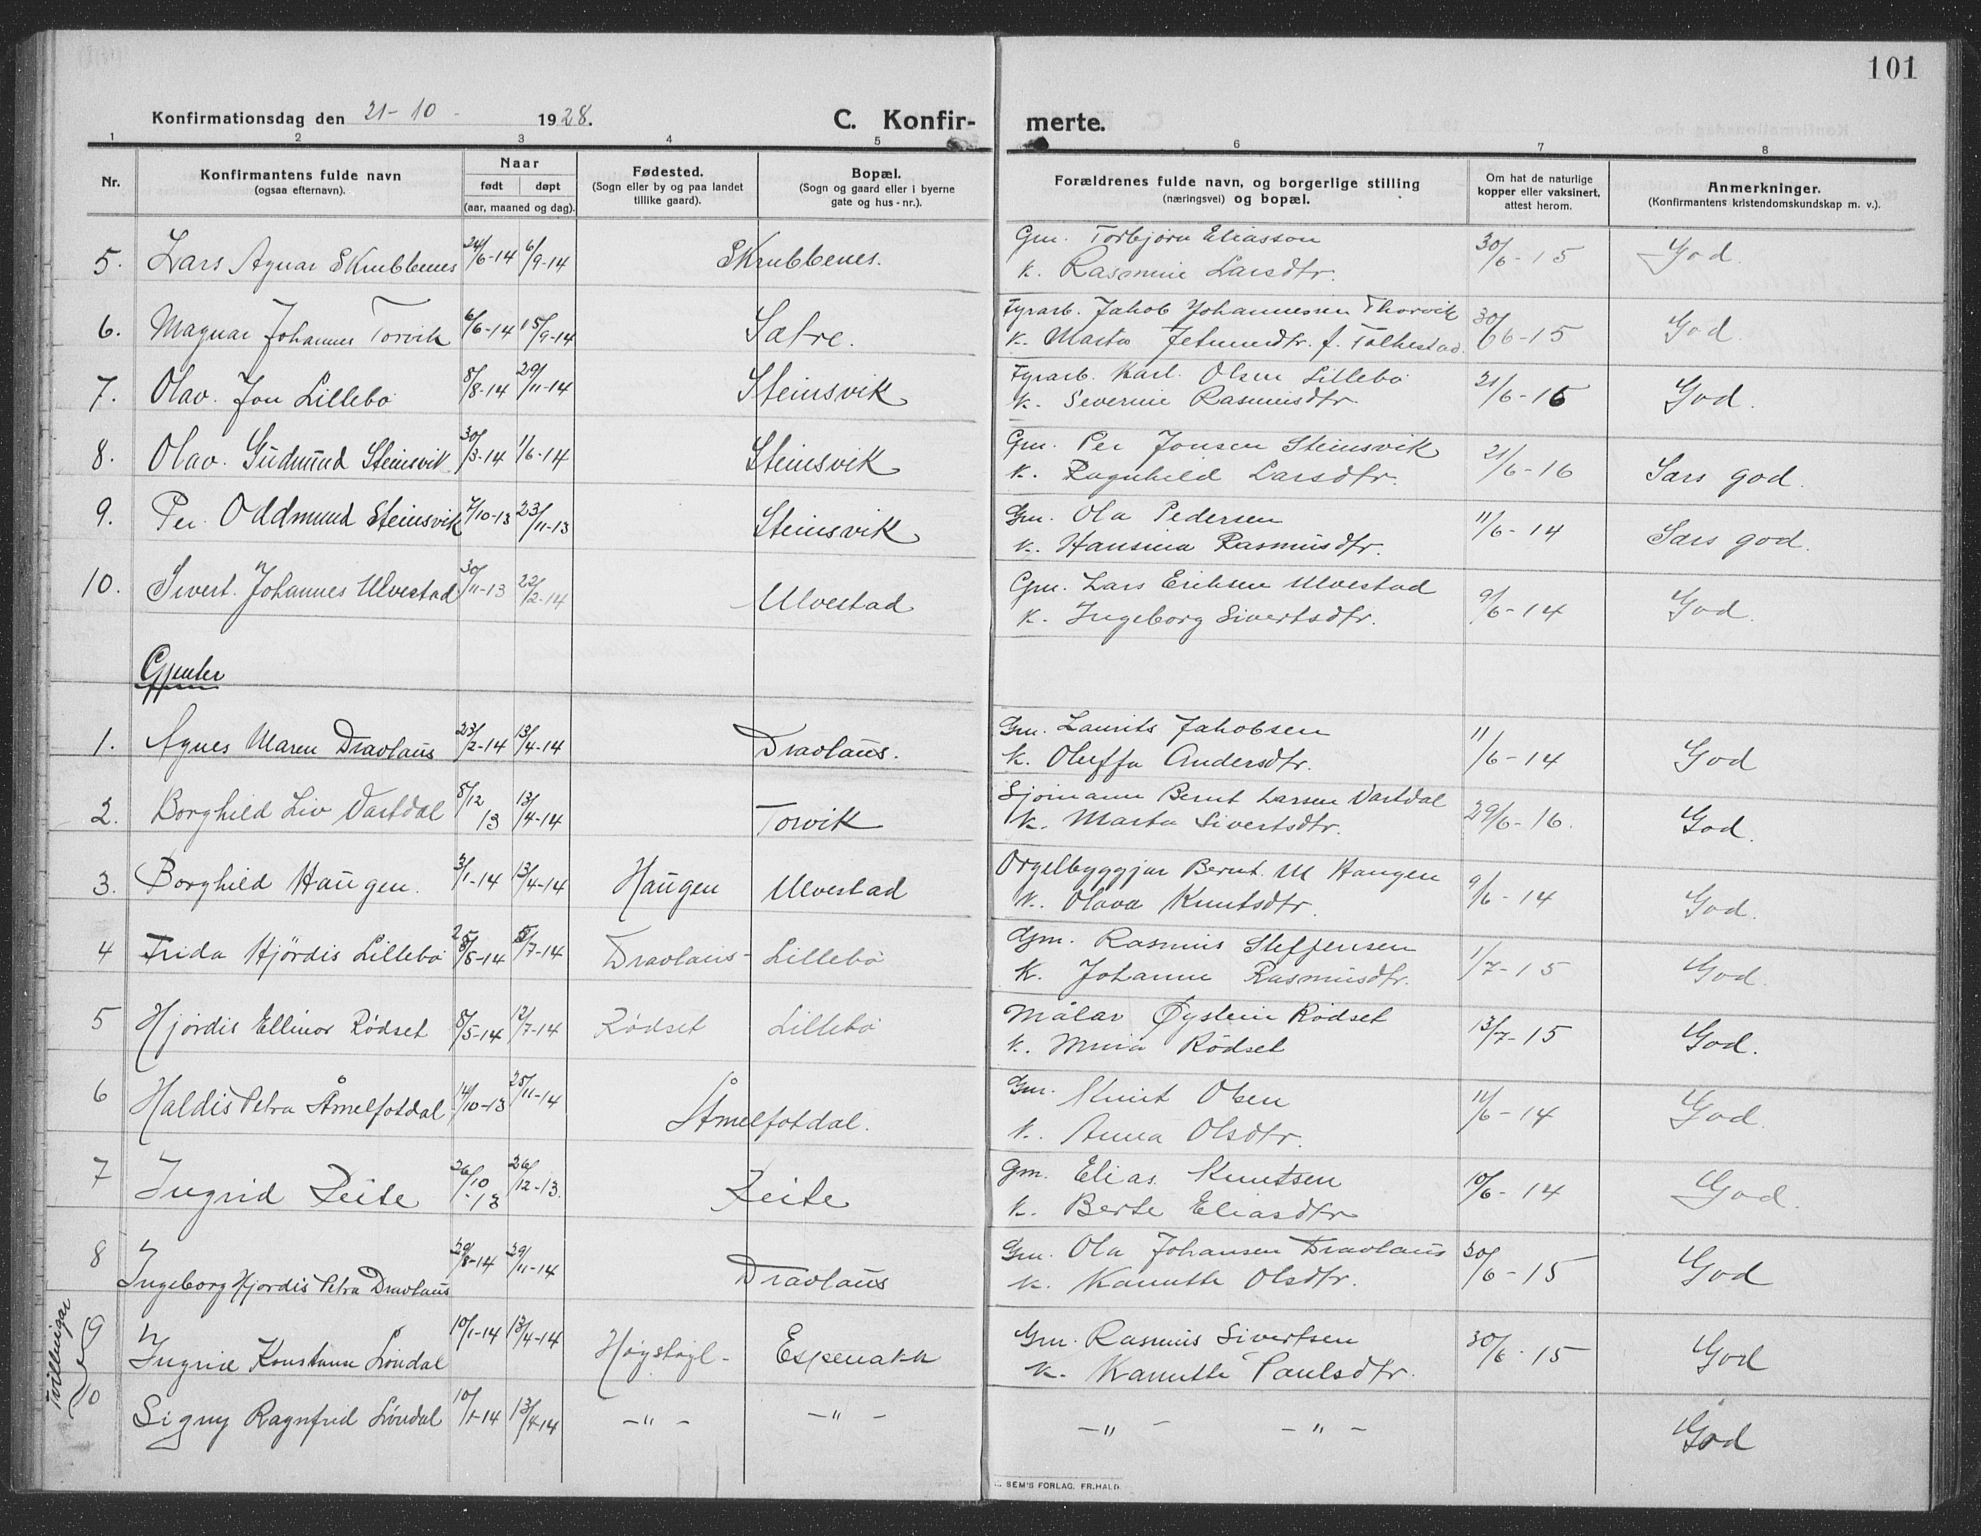 101
Konfirmationsdag den 21-10 - 1928.
C. Konfir- merte.
1 2 3 4 5 6 7 8
Nr.
Konfirmantens fulde navn
(ogsaa efternavn).
Naar
født døpt
(aar, maaned og dag).
Fødested.
(Sogn eller by og paa landet
tillike gaard).
Bopæl.
(Sogn og gaard eller i byerne
gate og hus-nr.).
Forældrenes fulde navn, og borgerlige stilling
(næringsvei) og bopæl.
Om hat de naturlige
kopper eller vaksinert,
attest herom.
Anmerkninger.
(Konfirmantens kristendomskundskap m. v.).
5. Lars Agnar Skrubbenes 24/6-14 6/9-14 Skrubbenes. Gm. Torbjørn Eliasson 30/6-15 God.
k. Rasmine Larsdtr.
6. Magnar Johannes Torvik 6/6-14 15/9-14 Sætre. Fyrarb. Jakob Johannessen Thorvik 30/6-15 God
k. Marta Jetmundtr. f. Folkestad.
7. Olav. Jon Lillebö 8/8-14 29/11-14 Steinsvik Fyrarb. Karl. Olsen Lillebö 21/6-16 God.
k. Severine Rasmusdtr.
8. Olav. Gudmund Steinsvik 30/3-14 1/6-14 Steinsvik Gm. Per Jonsen Steinsvik 21/6-16 Særs god.
k. Ragnhild Larsdtr.
9. Per. Oddmund Steinsvik 7/10-13 23/11-13 Steinsvik Gm. Ola Pedersen 11/6-14 Særs god.
k. Hansina Rasmusdtr.
10. Sivert. Johannes Ulvestad 30/11-13 22/2-14 Ulvestad Gm. Lars Eriksen Ulvestad 9/6-14 God.
k. Ingeborg Sivertsdtr.
Gjenter
1. Agnes Maren Dravlaus 23/2-14 13/4-14 Dravlaus. Gm. Laurits Jakobsen 11/6-14 God
k. Oluffa Andersdtr.
2. Borghild Liv Vartdal 8/12 13 13/4-14 Torvik Sjömann Bernt Larsen Vartdal 29/6-16. God.
k. Marta Sivertsdtr.
3. Borghild Haugen. 3/1-14 13/4-14 Haugen Ulvestad Orgelbyggjar Bernt. M Haugen 9/6-14 God.
k. Olava Knutsdtr.
4 Frida Hjördis Lillebö 25/5-14 5/7-14 Dravlaus- Lillebö Gm. Rasmus Steffensen 1/7-15 God.
k. Johanne Rasmusdtr.
5 Hjördis Ellinor Rödset 8/5-14 12/7-14 Rödset Lillebö Målar Øystein Rödset 13/7-15 God.
k. Rödset
6 Haldis Petra Åmelfotdal 14/10-13 25/11-14 Åmelfotdal. Gm. Knut Olsen 11/6-14 God.
k. Anna Olsdtr.
7 Ingrid Leite 26/10-13 26/12-13. Leite Gm. Elias Knutsen 10/6-14 God.
k. Berte Eliasdtr
8 Ingeborg Hjördis Petra Dravlaus 29/8-14 29/11-14 Dravlaus Gm. Ola Johansen Dravlaus 30/6-15 God
k. Kanutte Olsdtr.
Tvillingar
9 Ingrid Konstanse Löndal 10/1-14 13/4-14 Espenakk Gm. Rasmus Sivertsen 30/6-15 God
k. Kanutte Paulsdtr.
10 Signy Ragnfrid Löndal 10/1-14 13/4-14 -"- -"- -"- -"- God
SEM'S FORLAG. FR.HALD.